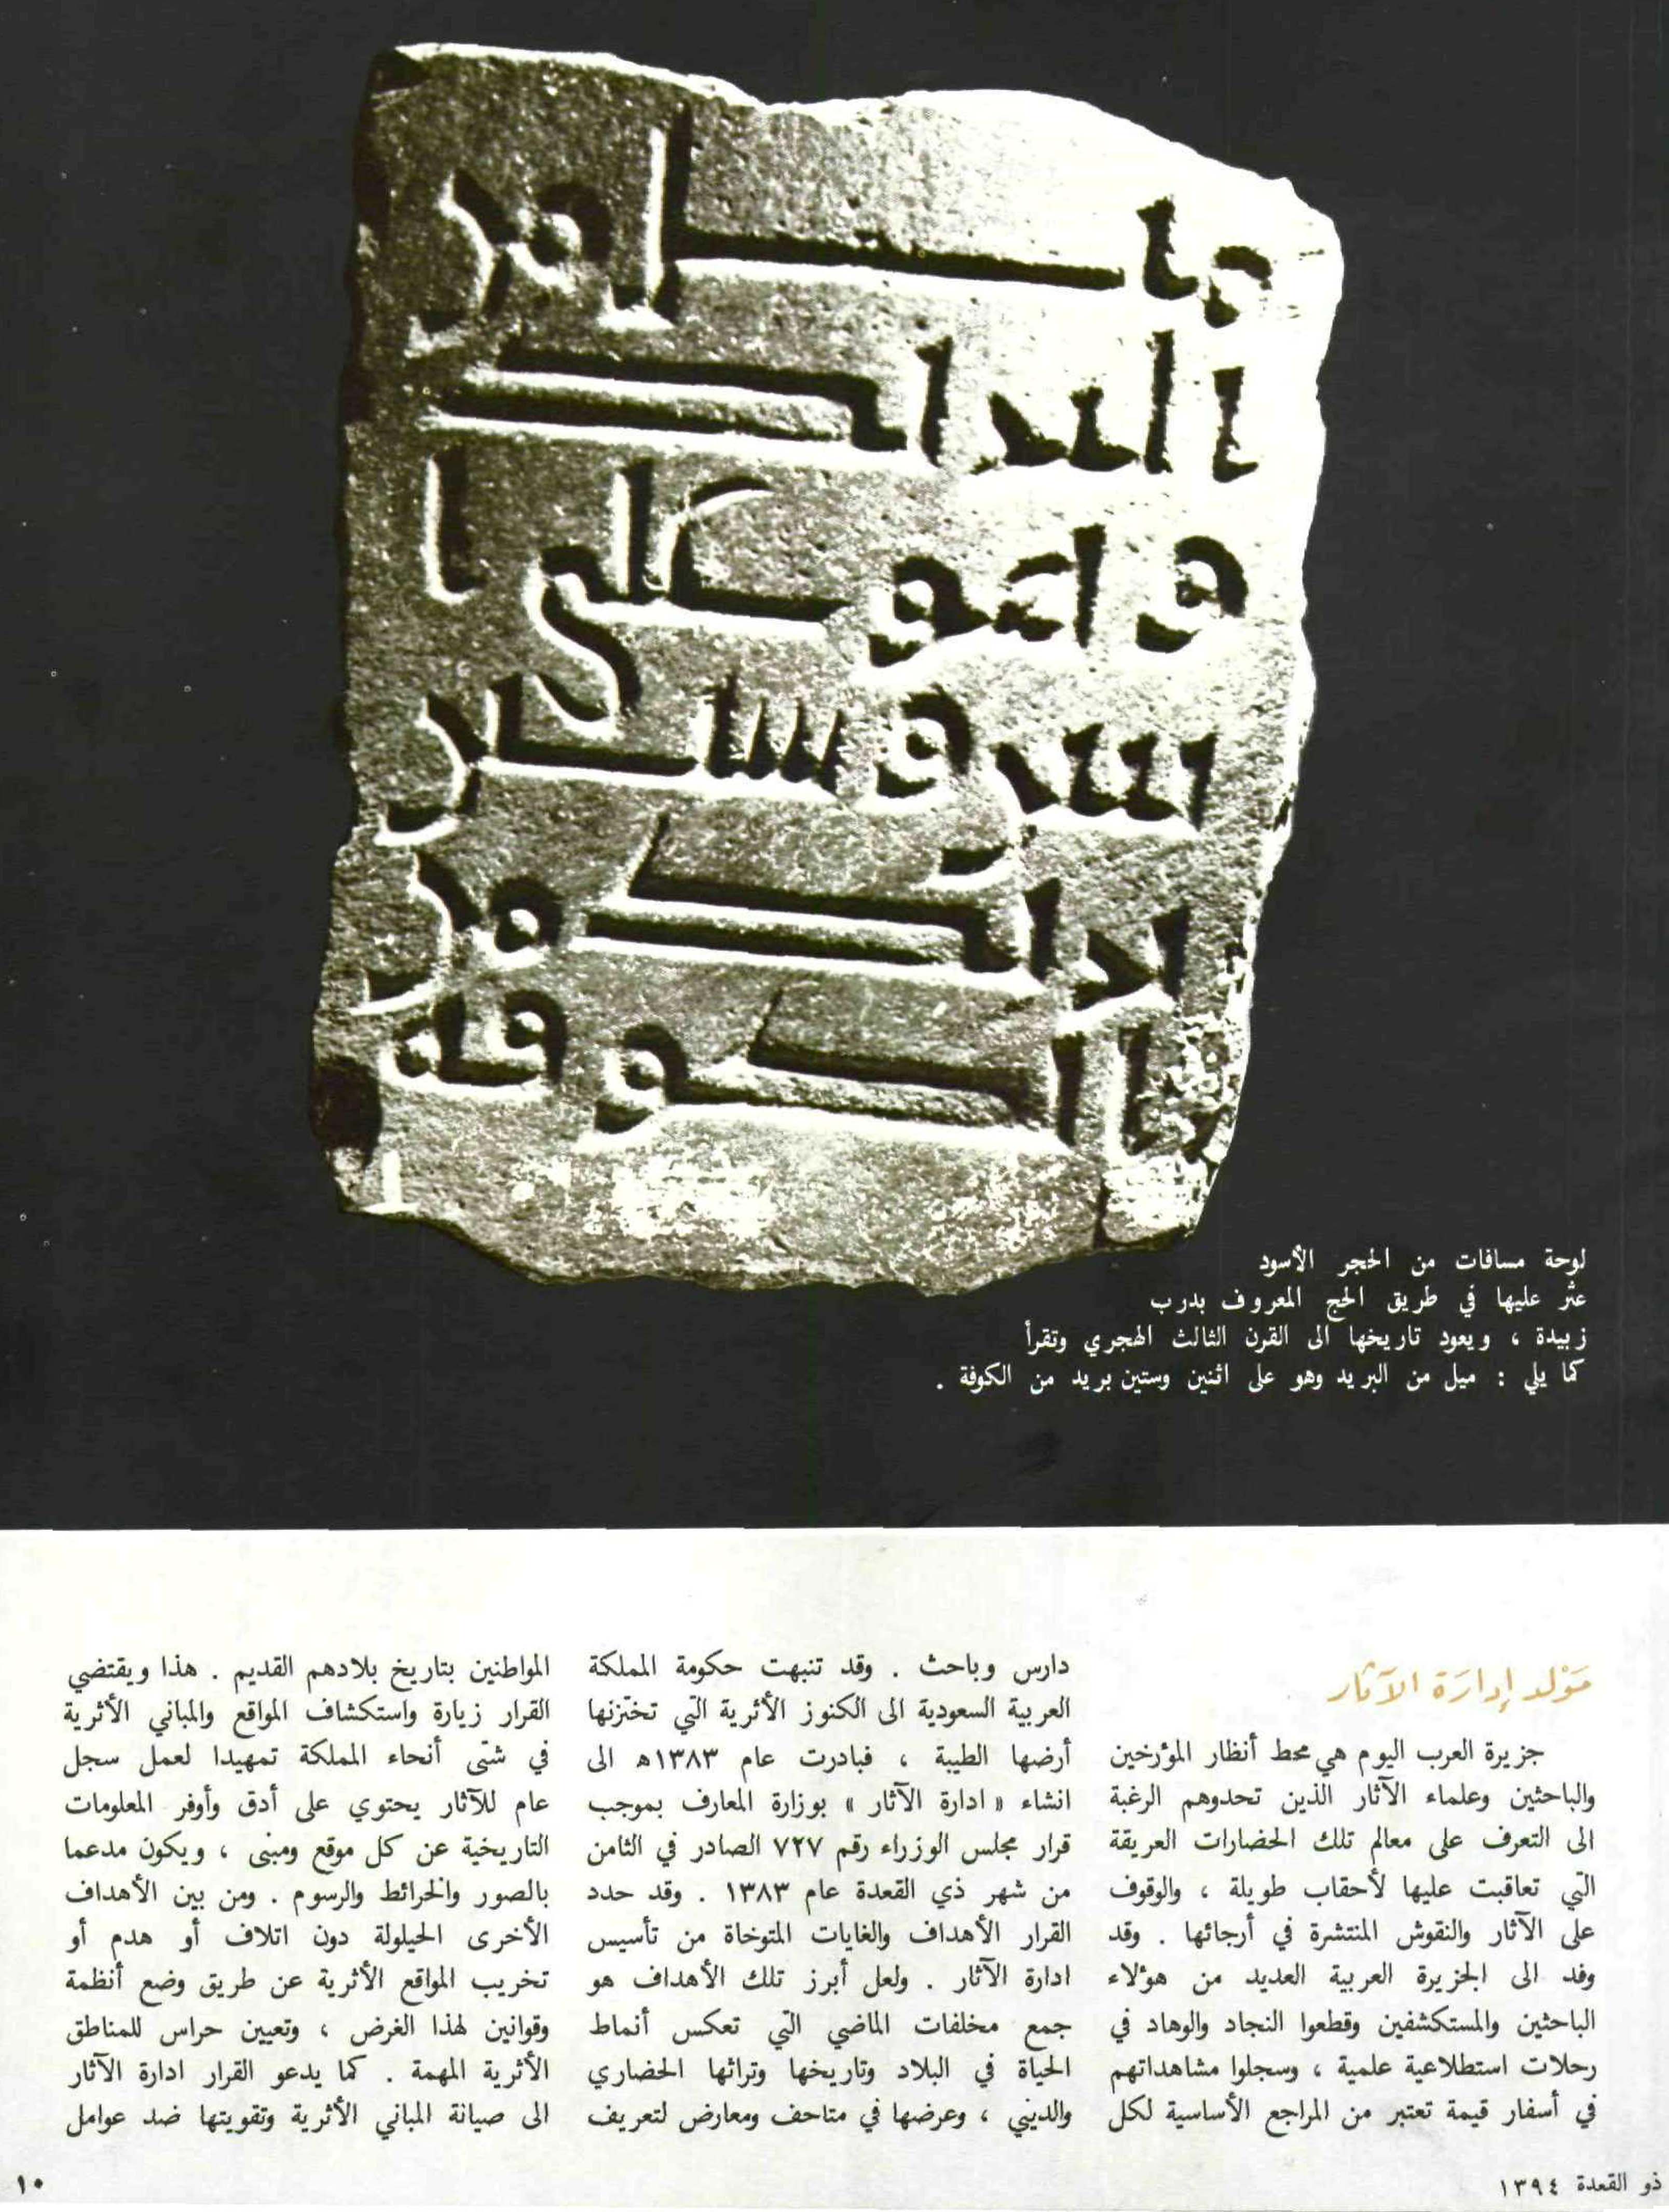 ميل من
البريد
وهو على ا
ثنين وستين
بريد من
الكوفة
لوحة مسافات من الحجر الأسود
عثر عليها في طريق الحج المعروف بدرب
زبيدة ، ويعود تاريخها الى القرن الثالث الهجري وتقرأ
كما يلي : ميل من البريد وهو على اثنين وستين بريد من الكوفة .
مَوْلد إدارَة الآثار
جزيرة العرب اليوم هي محط أنظار المؤرخين
والباحثين وعلماء الآثار الذين تحدوهم الرغبة
الى التعرف على معالم تلك الحضارات العريقة
التي تعاقبت عليها لأحقاب طويلة ، والوقوف
على الآثار والنقوش المنتشرة في أرجائها . وقد
وفد الى الجزيرة العربية العديد من هؤلاء
الباحثين والمستكشفين وقطعوا النجاد والوهاد في
رحلات استطلاعية علمية ، وسجلوا مشاهداتهم
في أسفار قيمة تعتبر من المراجع الأساسية لكل
دارس وباحث . وقد تنبهت حكومة المملكة
العربية السعودية الى الكنوز الأثرية التي تختزنها
أرضها الطيبة ، فبادرت عام ١٣٨٣ه الى
انشاء « ادارة الآثار » بوزارة المعارف بموجب
قرار مجلس الوزراء رقم ٧٢٧ الصادر في الثامن
من شهر ذي القعدة عام ١٣٨٣ . وقد حدد
القرار الأهداف والغايات المتوخاة من تأسيس
ادارة الآثار . ولعل أبرز تلك الأهداف هو
جمع مخلفات الماضي التي تعكس أنماط
الحياة في البلاد وتاريخها وتراثها الحضاري
والديني ، وعرضها في متاحف ومعارض لتعريف
المواطنين بتاريخ بلادهم القديم . هذا ويقتضي
القرار زيارة واستكشاف المواقع والمباني الأثرية
في شتى أنحاء المملكة تمهيدا لعمل سجل
عام للآثار يحتوي على أدق وأوفر المعلومات
التاريخية عن كل موقع ومبنى ، ويكون مدعما
بالصور والخرائط والرسوم . ومن بين الأهداف
الأخرى الحيلولة دون اتلاف أو هدم أو
تخريب المواقع الأثرية عن طريق وضع أنظمة
وقوانين لهذا الغرض ، وتعيين حراس للمناطق
الأثرية المهمة . كما يدعو القرار ادارة الآثار
الى صيانة المباني الأثرية وتقويتها ضد عوامل
ذو القعدة ١٣٩٤
١٠